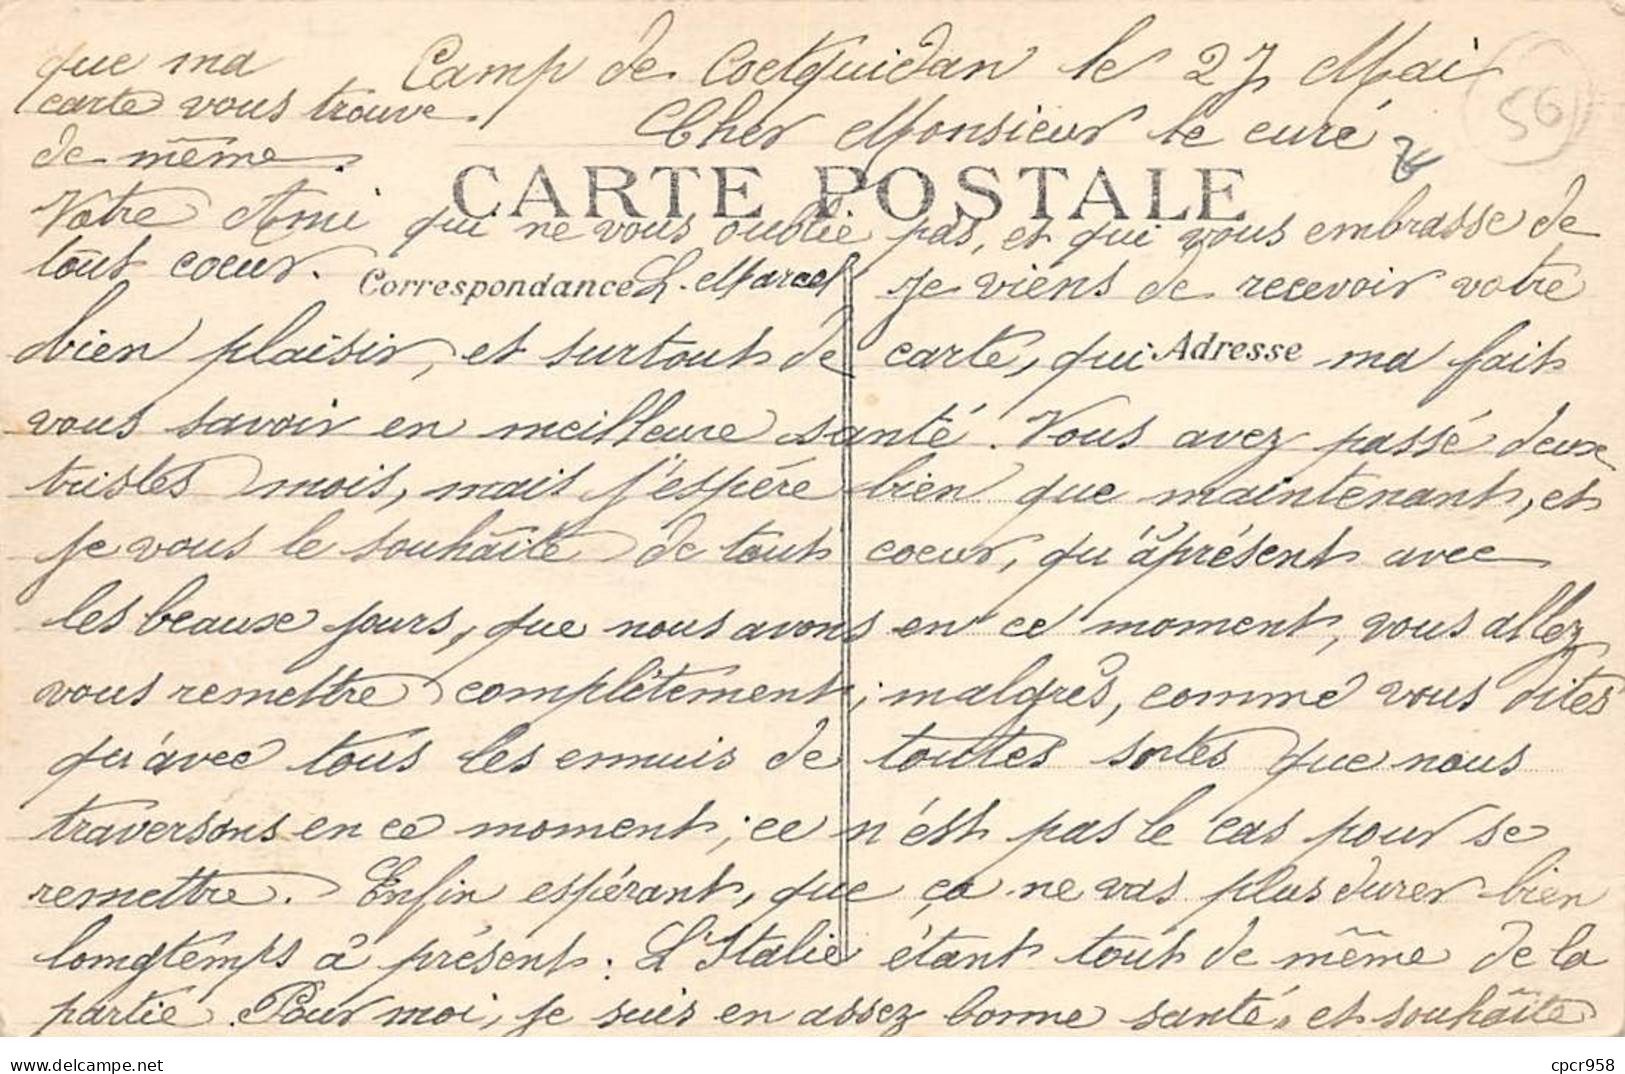 Camp de Coetquidan le 27 Mai
Cher Monsieur le curé
56
CARTE POSTALE
Correspondance
Adresse
Je viens de recevoir votre
carte, qui ma fait
bien plaisir, et surtout de
vous savoir en meilleure santé. Vous avez passé deux
tristes mois, mais j'espère bien que maintenant, et
je vous le souhaite de tout coeur, qu'àprésent avec
les beaux jours, que nous avons en ce moment, vous allez
vous remettre complètement; malgrès, comme vous dites
qu'avec tous les ennuis de toutes sortes que nous
traversons en ce moment; ce n'est pas le cas pour se
remettre. Enfin espérant, que ça ne vas plus durer bien
longtemps à présent. L'Italie étant tout de même de la
partie. Pour moi, je suis en assez bonne santé, et souhaite
que ma
carte vous trouve
de même.
Votre Ami qui ne vous oublie pas, et qui vous embrasse de
tout coeur. L. Marcel
cpcr958